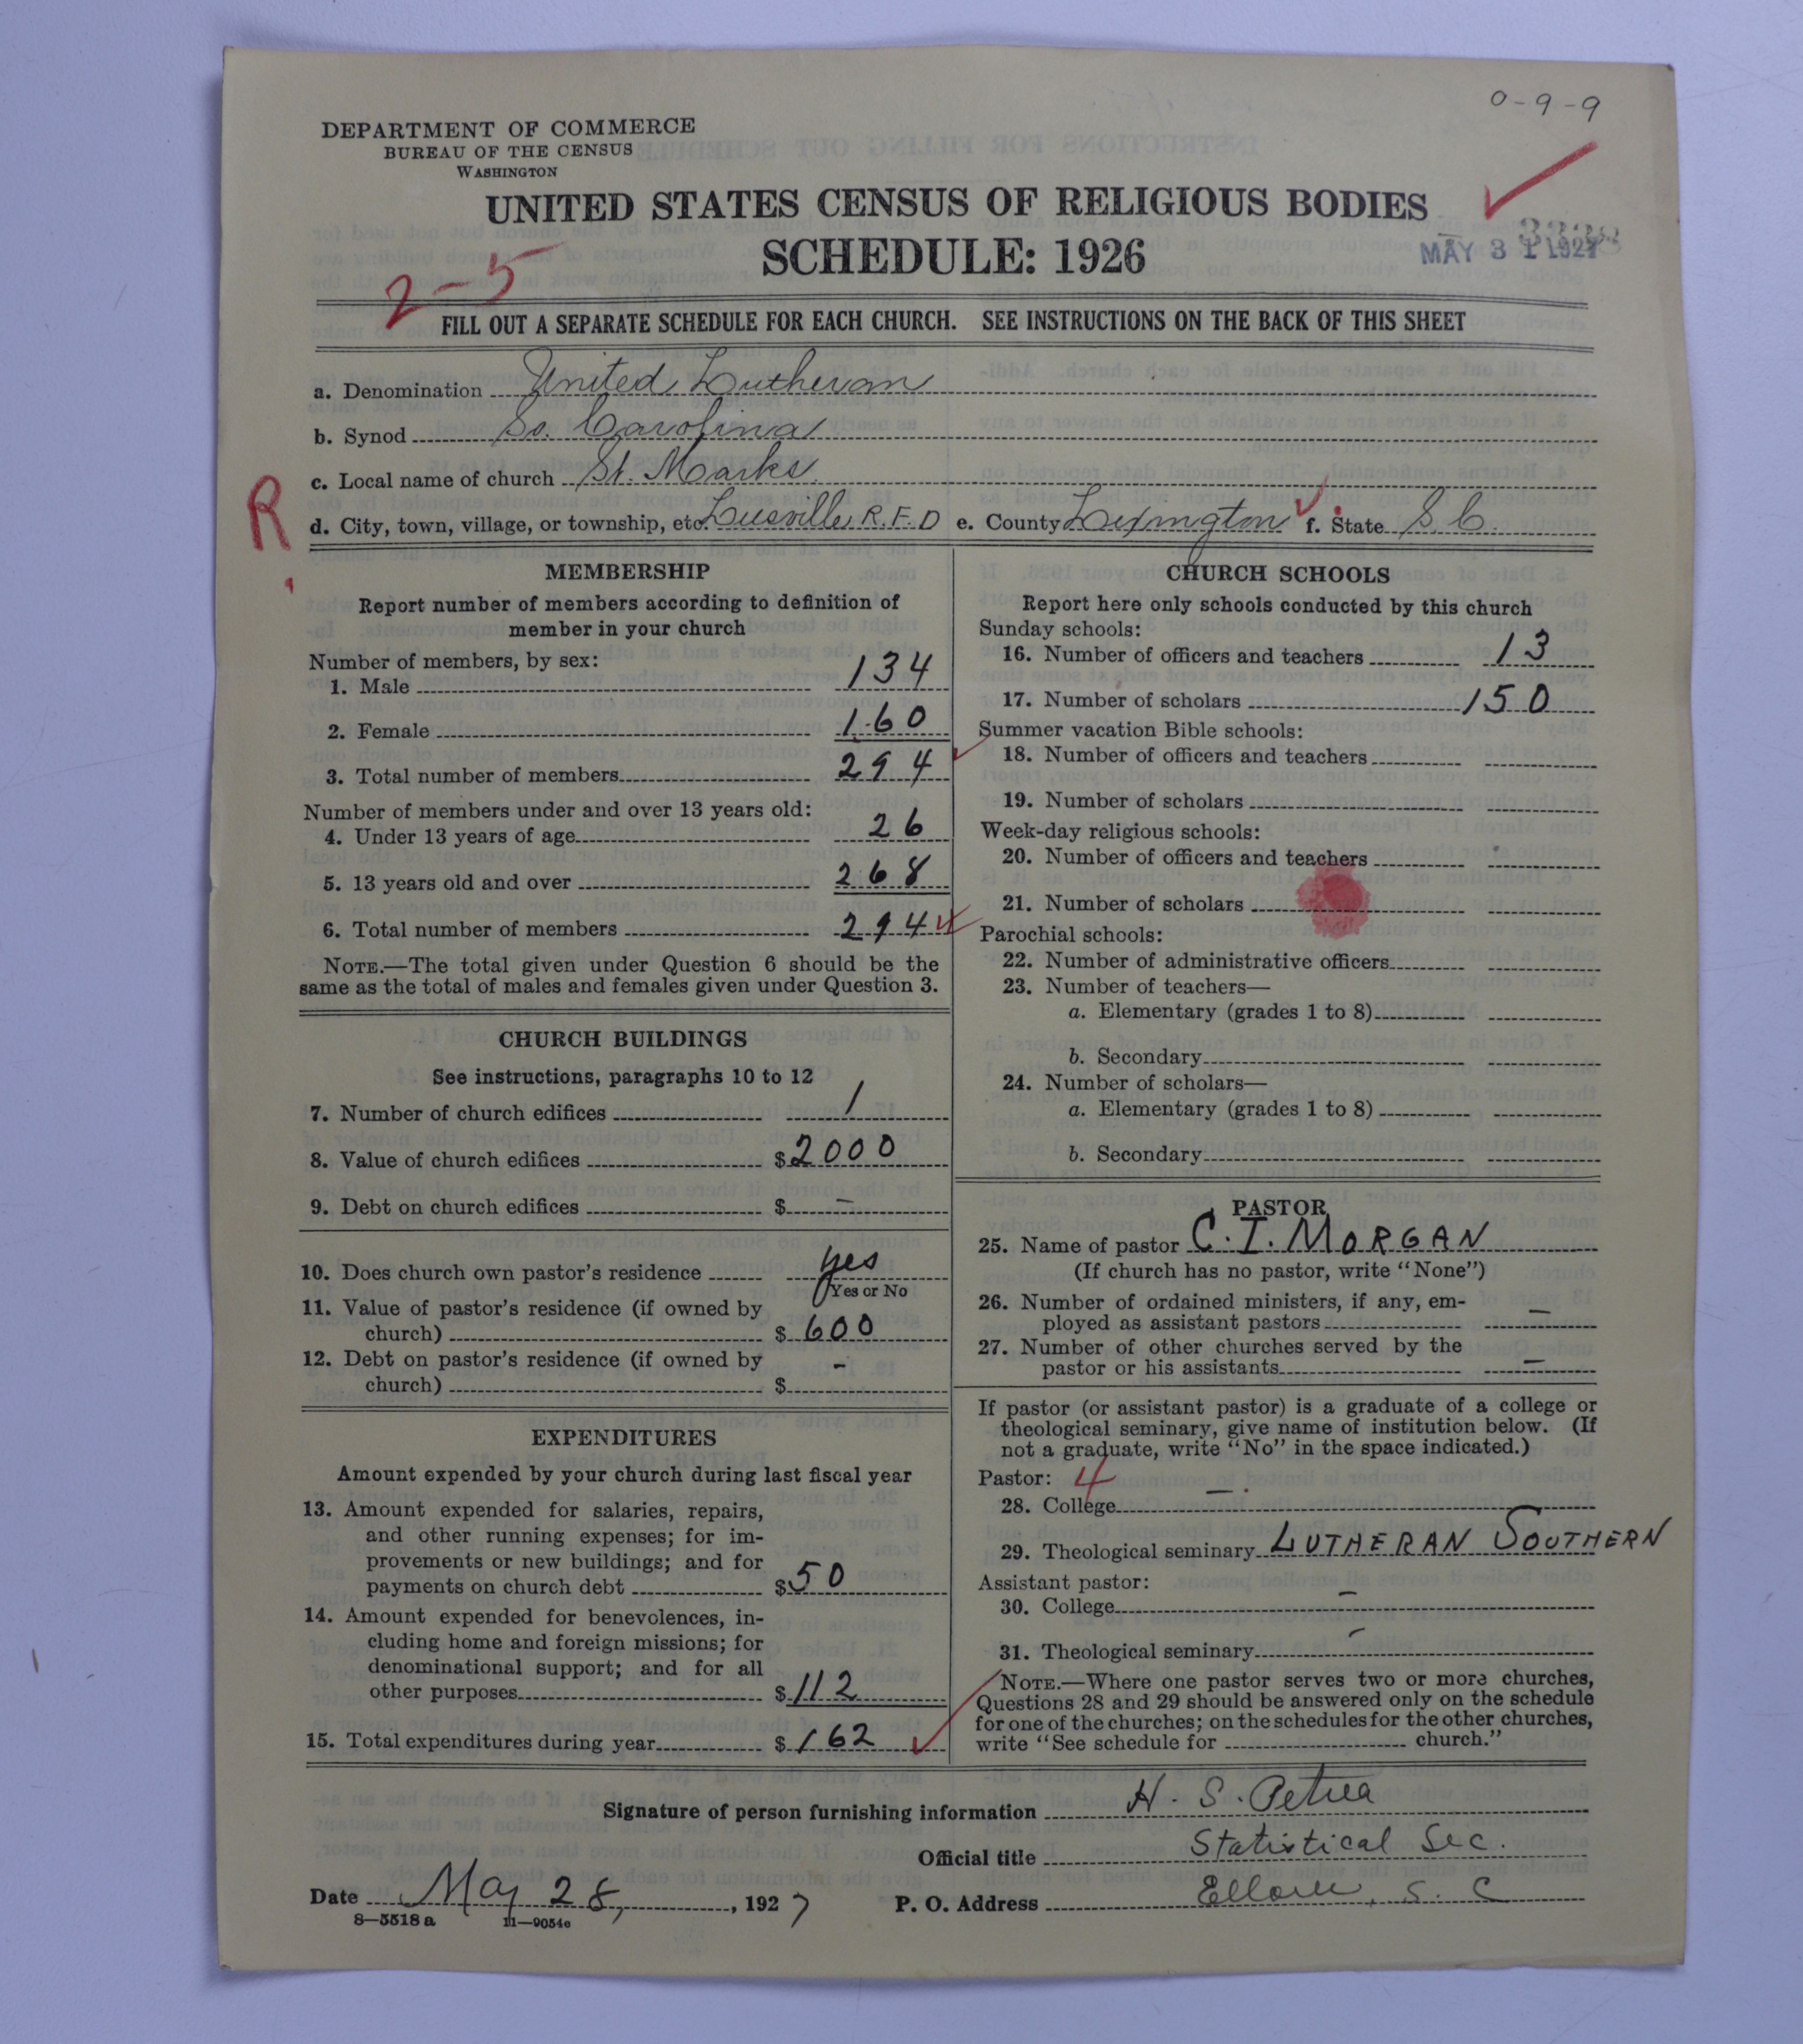 0-9-9
DEPARTMENT OF COMMERCE
BUREAU OF THE CENSUS
WASHINGTON
UNITED STATES CENSUS OF RELIGIOUS BODIES
SCHEDULE: 1926
MAY 31 1927
2-5
FILL OUT A SEPARATE SCHEDULE FOR EACH CHURCH. SEE INSTRUCTIONS ON THE BACK OF THIS SHEET
a. Denomination United Lutheran
b. Synod So. Carolina
c. Local name of church St. Marks
R
d. City, town, village, or township, etc. Leesville, R.F.D e. County Lexington f. State S.C.
MEMBERSHIP
Report number of members according to definition of
member in your church
Number of members, by sex:
1. Male 134
2. Female 160
3. Total number of members 294
Number of members under and over 13 years old:
4. Under 13 years of age 26
5. 13 years old and over 268
6. Total number of members 294
NOTE.—The total given under Question 6 should be the
same as the total of males and females given under Question 3.
CHURCH BUILDINGS
See instructions, paragraphs 10 to 12
7. Number of church edifices 1
8. Value of church edifices $2000
9. Debt on church edifices $ –
10. Does church own pastor's residence yes
Yes or No
11. Value of pastor's residence (if owned by
church) $ 600
12. Debt on pastor's residence (if owned by
church) $ –
EXPENDITURES
Amount expended by your church during last fiscal year
13. Amount expended for salaries, repairs,
and other running expenses; for im-
provements or new buildings; and for
payments on church debt $50
14. Amount expended for benevolences, in-
cluding home and foreign missions; for
denominational support; and for all
other purposes $112
15. Total expenditures during year $162
CHURCH SCHOOLS
Report here only schools conducted by this church
Sunday schools:
16. Number of officers and teachers 13
17. Number of scholars 150
Summer vacation Bible schools:
18. Number of officers and teachers
19. Number of scholars
Week-day religious schools:
20. Number of officers and teachers
21. Number of scholars
Parochial schools:
22. Number of administrative officers
23. Number of teachers—
a. Elementary (grades 1 to 8)
b. Secondary
24. Number of scholars—
a. Elementary (grades 1 to 8)
b. Secondary
PASTOR
25. Name of pastor C. I. MORGAN
(If church has no pastor, write "None")
26. Number of ordained ministers, if any, em-
ployed as assistant pastors –
27. Number of other churches served by the
pastor or his assistants –
If pastor (or assistant pastor) is a graduate of a college or
theological seminary, give name of institution below. (If
not a graduate, write "No" in the space indicated.)
Pastor: 4
28. College –
29. Theological seminary LUTHERAN SOUTHERN
Assistant pastor:
30. College –
31. Theological seminary –
NOTE.—Where one pastor serves two or more churches,
Questions 28 and 29 should be answered only on the schedule
for one of the churches; on the schedules for the other churches,
write "See schedule for church."
Signature of person furnishing information H. S. Petrea
Official title Statistical Sec.
Date May 28, 1927 P. O. Address Elloree, S. C
8—5518 a 11—9054c